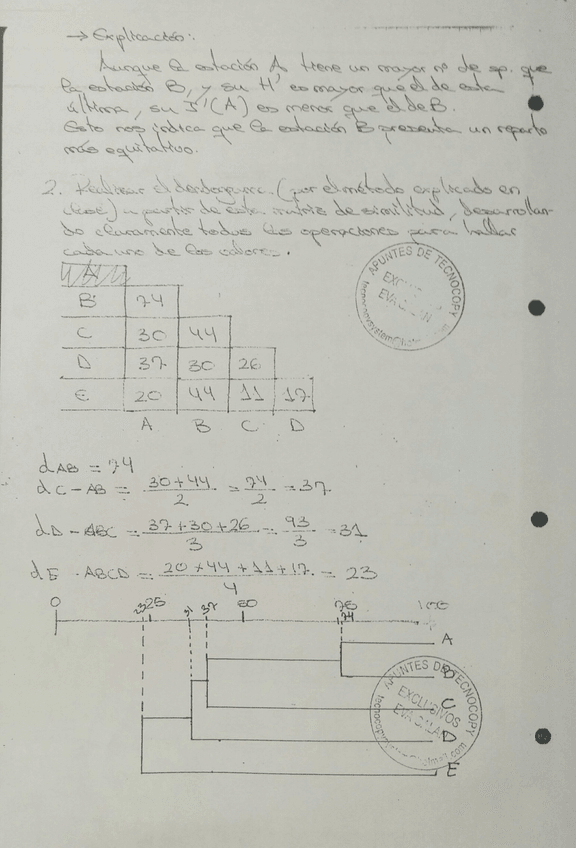 → Explicación:
Aunque la estación A tiene un mayor nº de sp. que
la estación B, y su H' es mayor que el de esta
última, su J'(A) es menor que el de B.
Esto nos indica que la estación B presenta un reparto
más equitativo.
2. Realizar el (por el método explicado en
) a partir de esta matriz de similitud, desarrollan-
do claramente todas las operaciones para hallar
cada uno de los valores.
A
B 74
C 30 44
D 37 30 26
E 20 44 11 17
A B C D
dAB = 74
dC-AB = 30+44 / 2 = 74 / 2 = 37
dD-ABC = 37+30+26 / 3 = 93 / 3 = 31
dE-ABCD = 20+44+11+17 / 4 = 23
0 23 25 31 37 50 75 74 100
A
B
C
D
E
APUNTES DE TECNOCOPY
EXCLUSIVOS
EVA GALAN
APUNTES DE TECNOCOPY
EXCLUSIVOS
EVA GALAN